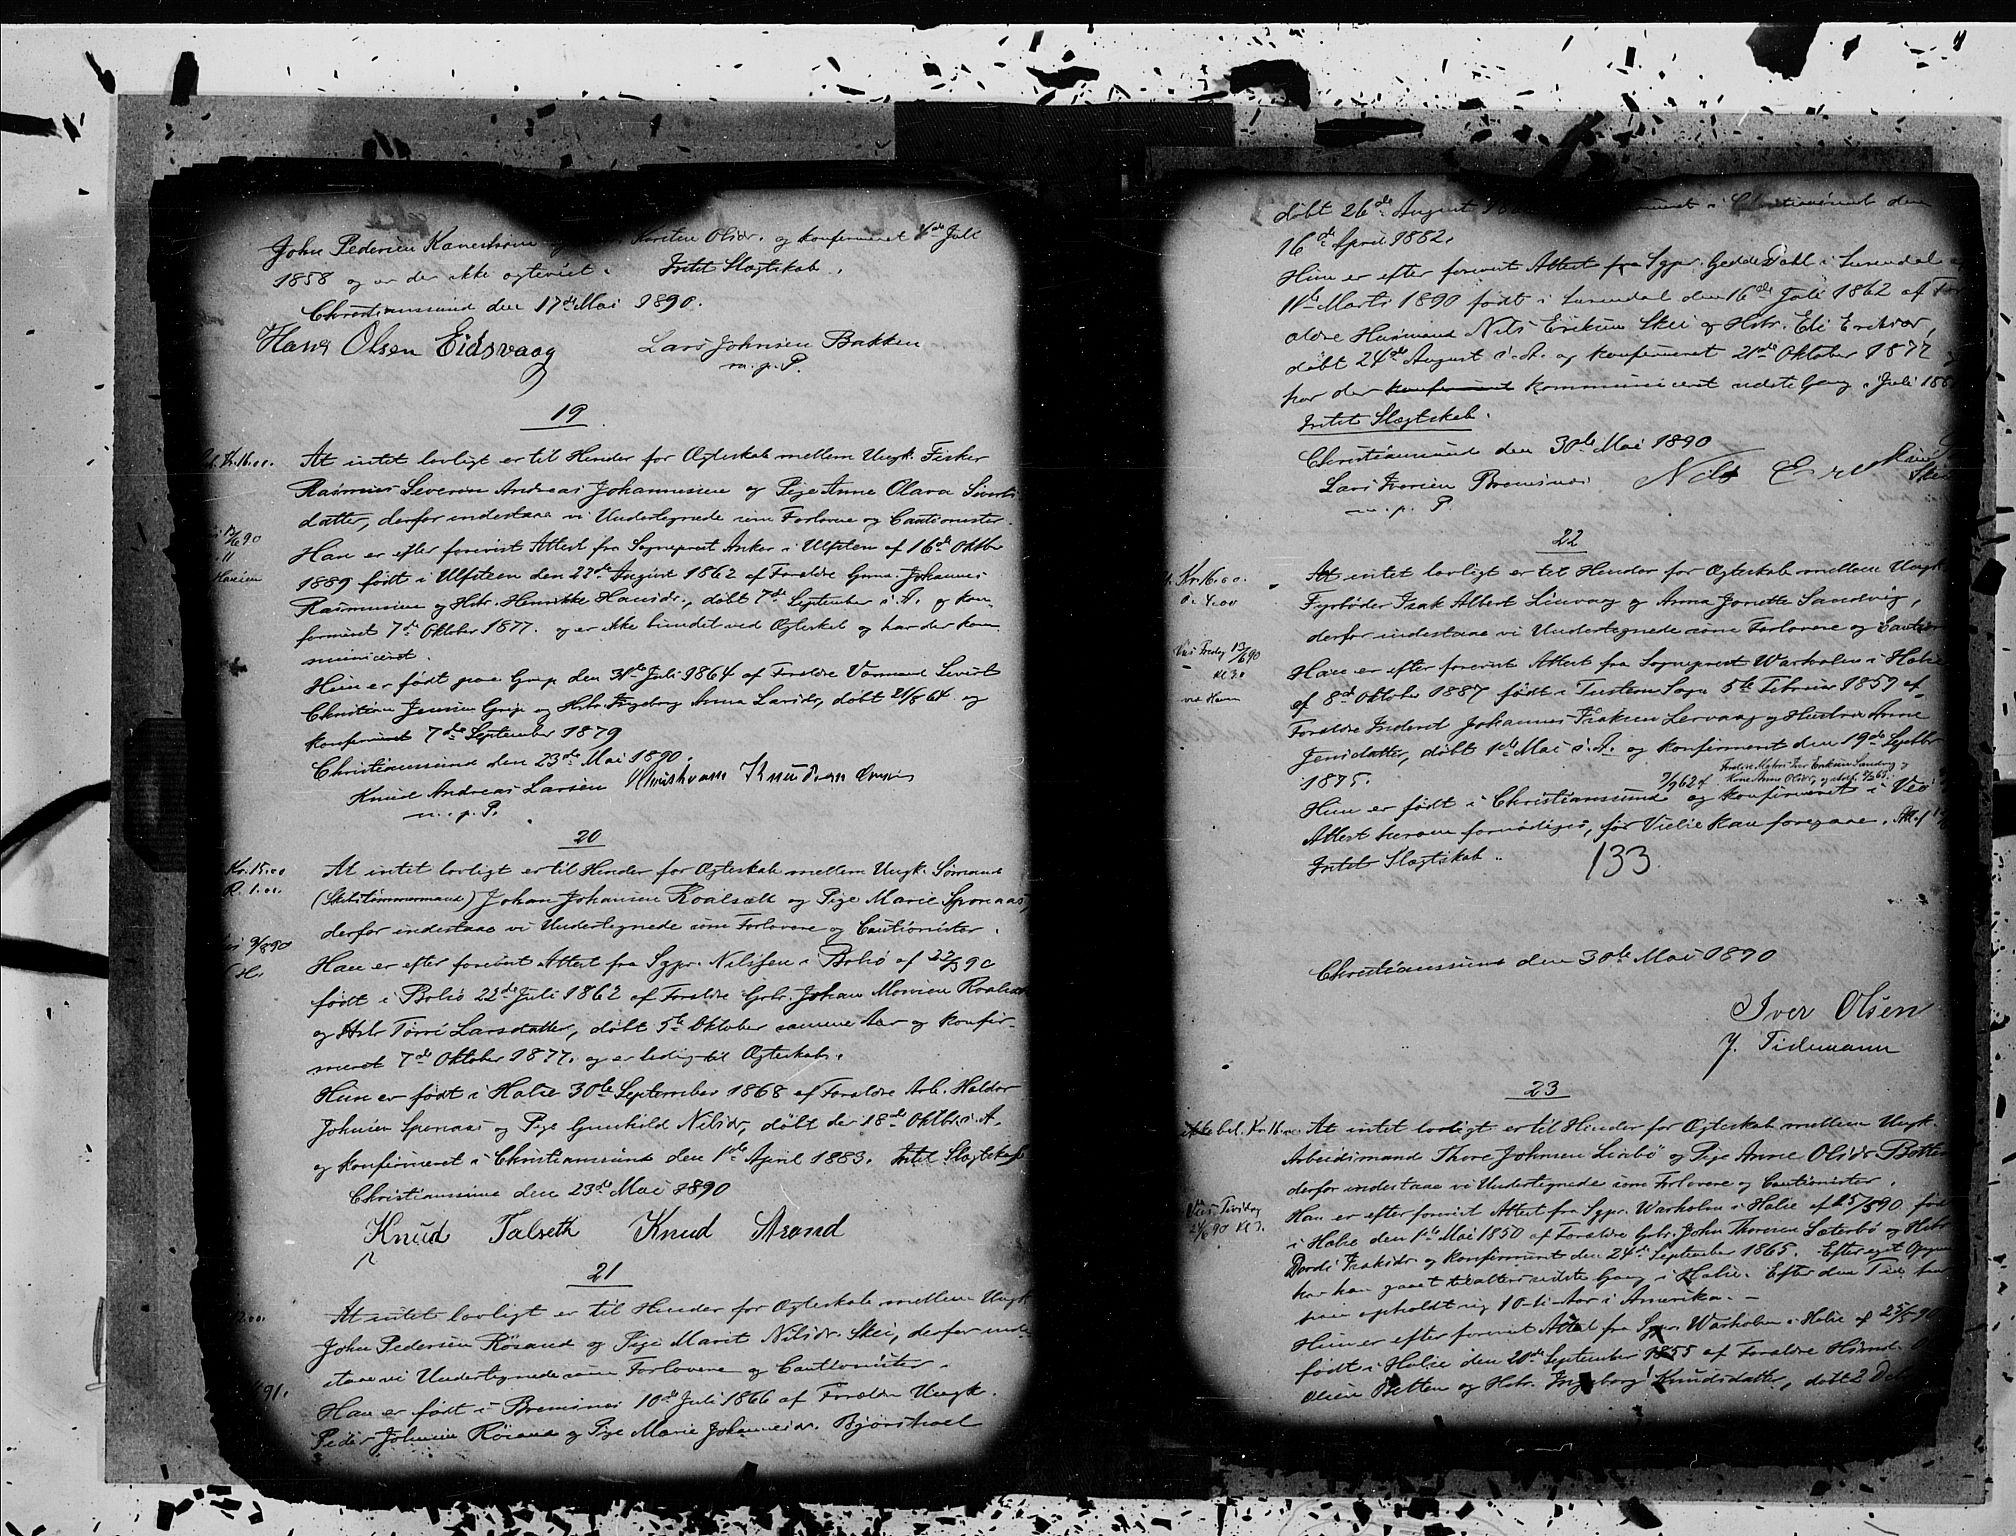 John Pedersen Karsten Olsdr. og konfirmeret Juli
1858 og er der ikke ægteviet. Intet Slægtskab.
Christianssund den 17de Mai 1890.
Hans Olsen Eidsvaag Lars Johnsen Bakken
m. p. P.
19
Kr. 16.00.
At intet lovligt er til Hinder for Ægteskab mellem Ungk. Fisker
Rasmus Severin Andreas Johannessen og Pige Anne Olava Siverts
datter, derfor indestaae vi Undertegnede som Forlovere og Cautionister.
Han er efter forevist Attest fra Sogneprest Anker i Ulfsteen af 16de Oktbr
1889 født i Ulfsteen den 22de August 1862 af Forældre Gmd. Johannes
Rasmussen og Hstr. Henrikke Hansdr., døbt 7de September s. A. og kon-
firmeret 7de Oktober 1877. og er ikke bundet ved Ægteskab og har der kom-
municeret.
Hun er født paa Grip den 31te Juli 1864 af Forældre Vormand Sivert
Christian Jensen Grip og Hstr. Ingeborg Anna Larsdr, døbt 21/8 64 og
konfirmeret 7de September 1879
Christianssund den 23de Mai 1890.
Knud Andreas Larsen Christian Knudsen
m. p. P.
20
Kr. 15.00
R. 1.00.
At intet lovligt er til Hinder for Ægteskab mellem Ungk. Sømand
(Skibstømmermand) Johan Johansen Roalsæth og Pige Marie Sponaas,
derfor indestaae vi Undertegnede som Forlovere og Cautionister.
9/8 90
Han er efter forevist Attest fra Sgpr. Nilssen i Bolsø af 22/3 90
født i Bolsø 22de Juli 1862 af Forældre Gbr. Johan Monsen Roalsæt
og Hstr Torri Larsdatter, døbt 5te Oktober samme Aar og konfir-
meret 7de Oktober 1877. og er ledig til Ægteskab.
Hun er født i Halse 30te September 1868 af Forældre Arb. Haldor
Johnsen Sponaas og Pige Gunhild Nilsdr, døbt der 18de Oktbr s. A.
og konfirmeret i Christianssund den 1ste April 1883. Intet Slægtskab
Christianssund den 23de Mai 1890
Knud Talseth Knud Strand
21
At intet lovligt er til Hinder for Ægteskab mellem Ungk
John Pedersen Rösand og Pige Marit Nilsdr. Skei, derfor inde-
staae vi Undertegnede som Forlovere og Cautionister.
91.
Han er født i Bremsnes 10de Juli 1866 af Forældre Ungk.
Peder Johnsen Rösand og Pige Marie Johannesdr. Bjørshoel
døbt 26de August i Christianssund den
16de April 1882.
Hun er efter forevist Attest fra Sgpr. Gedde Dahl i Surendal
11te Marts 1890 født i Surendal den 16de Juli 1862 af For
ældre Husmand Nils Eriksen Skei og Hstr. Eli Eriksdr,
døbt 24de August s. A. og konfirmeret 21de Oktober 1877
har der konfirmeret kommuniceret sidste Gang i Juli 188
Intet Slægtskab.
Christianssund den 30te Mai 1890
Lars Iversen Bremsnes Nils Eriksen
m. p. P. Skei
22
Kr. 16.00.
4.00
At intet lovligt er til Hinder for Ægteskab mellem Ungk
Fyrbøder Isak Albert Linvaag og Anna Jonette Sandvig,
derfor indestaae vi Undertegnede som Forlovere og Caution
Viet Fredag 13/6 90
Han er efter forevist Attest fra Sogneprest Warholm i Halse
af 8de Oktober 1887 født i Tustern Sogn 5te Februar 1859 af
Forældre Inderst Johannes Isaksen Lervaag og Hustru Anne
Jensdatter, døbt 1ste Mai s. A. og konfirmeret den 19de Septbr
1875.
Forældre Iver Eriksen Sandvig og
Kone Anne Olsdr,
Hun er født i Christianssund 7/9 62 og konfirmeret i Veø
Attest herom forevises, før Vielse kan foregaae.
Intet Slægtskab. 133
Christianssund den 30te Mai 1890
Iver Olsen
J. Tidemann
23
ikke bet. Kr. 16.00
At intet lovligt er til Hinder for Ægteskab mellem Ungk.
Arbeidsmand Thore Johnsen Liabø og Pige Anne Olsdr Botten
derfor indestaae vi Undertegnede som Forlovere og Cautionister.
Viet Tirsdag
Han er efter forevist Attest fra Sgpr. Warholm i Halse af 25/5 90. født
i Halse den 1ste Mai 1850 af Forældre Gbr. John Thoresen Sæterbø og Hstr
Dordi Isaksdr og konfirmeret den 24de September 1865. Efter eget Opgivende
har han gaaet til alters sidste Gang i Halse. Efter den Tid har
han opholdt sig 10-ti-Aar i Amerika.
Hun er efter forevist Attest fra Sgpr. Warholm i Halse af 25/5 90
født i Halse den 20de September 1855 af Forældre Hsmd.
Olsen Botten og Hstr. Ingeborg Knudsdatter, døbt 2